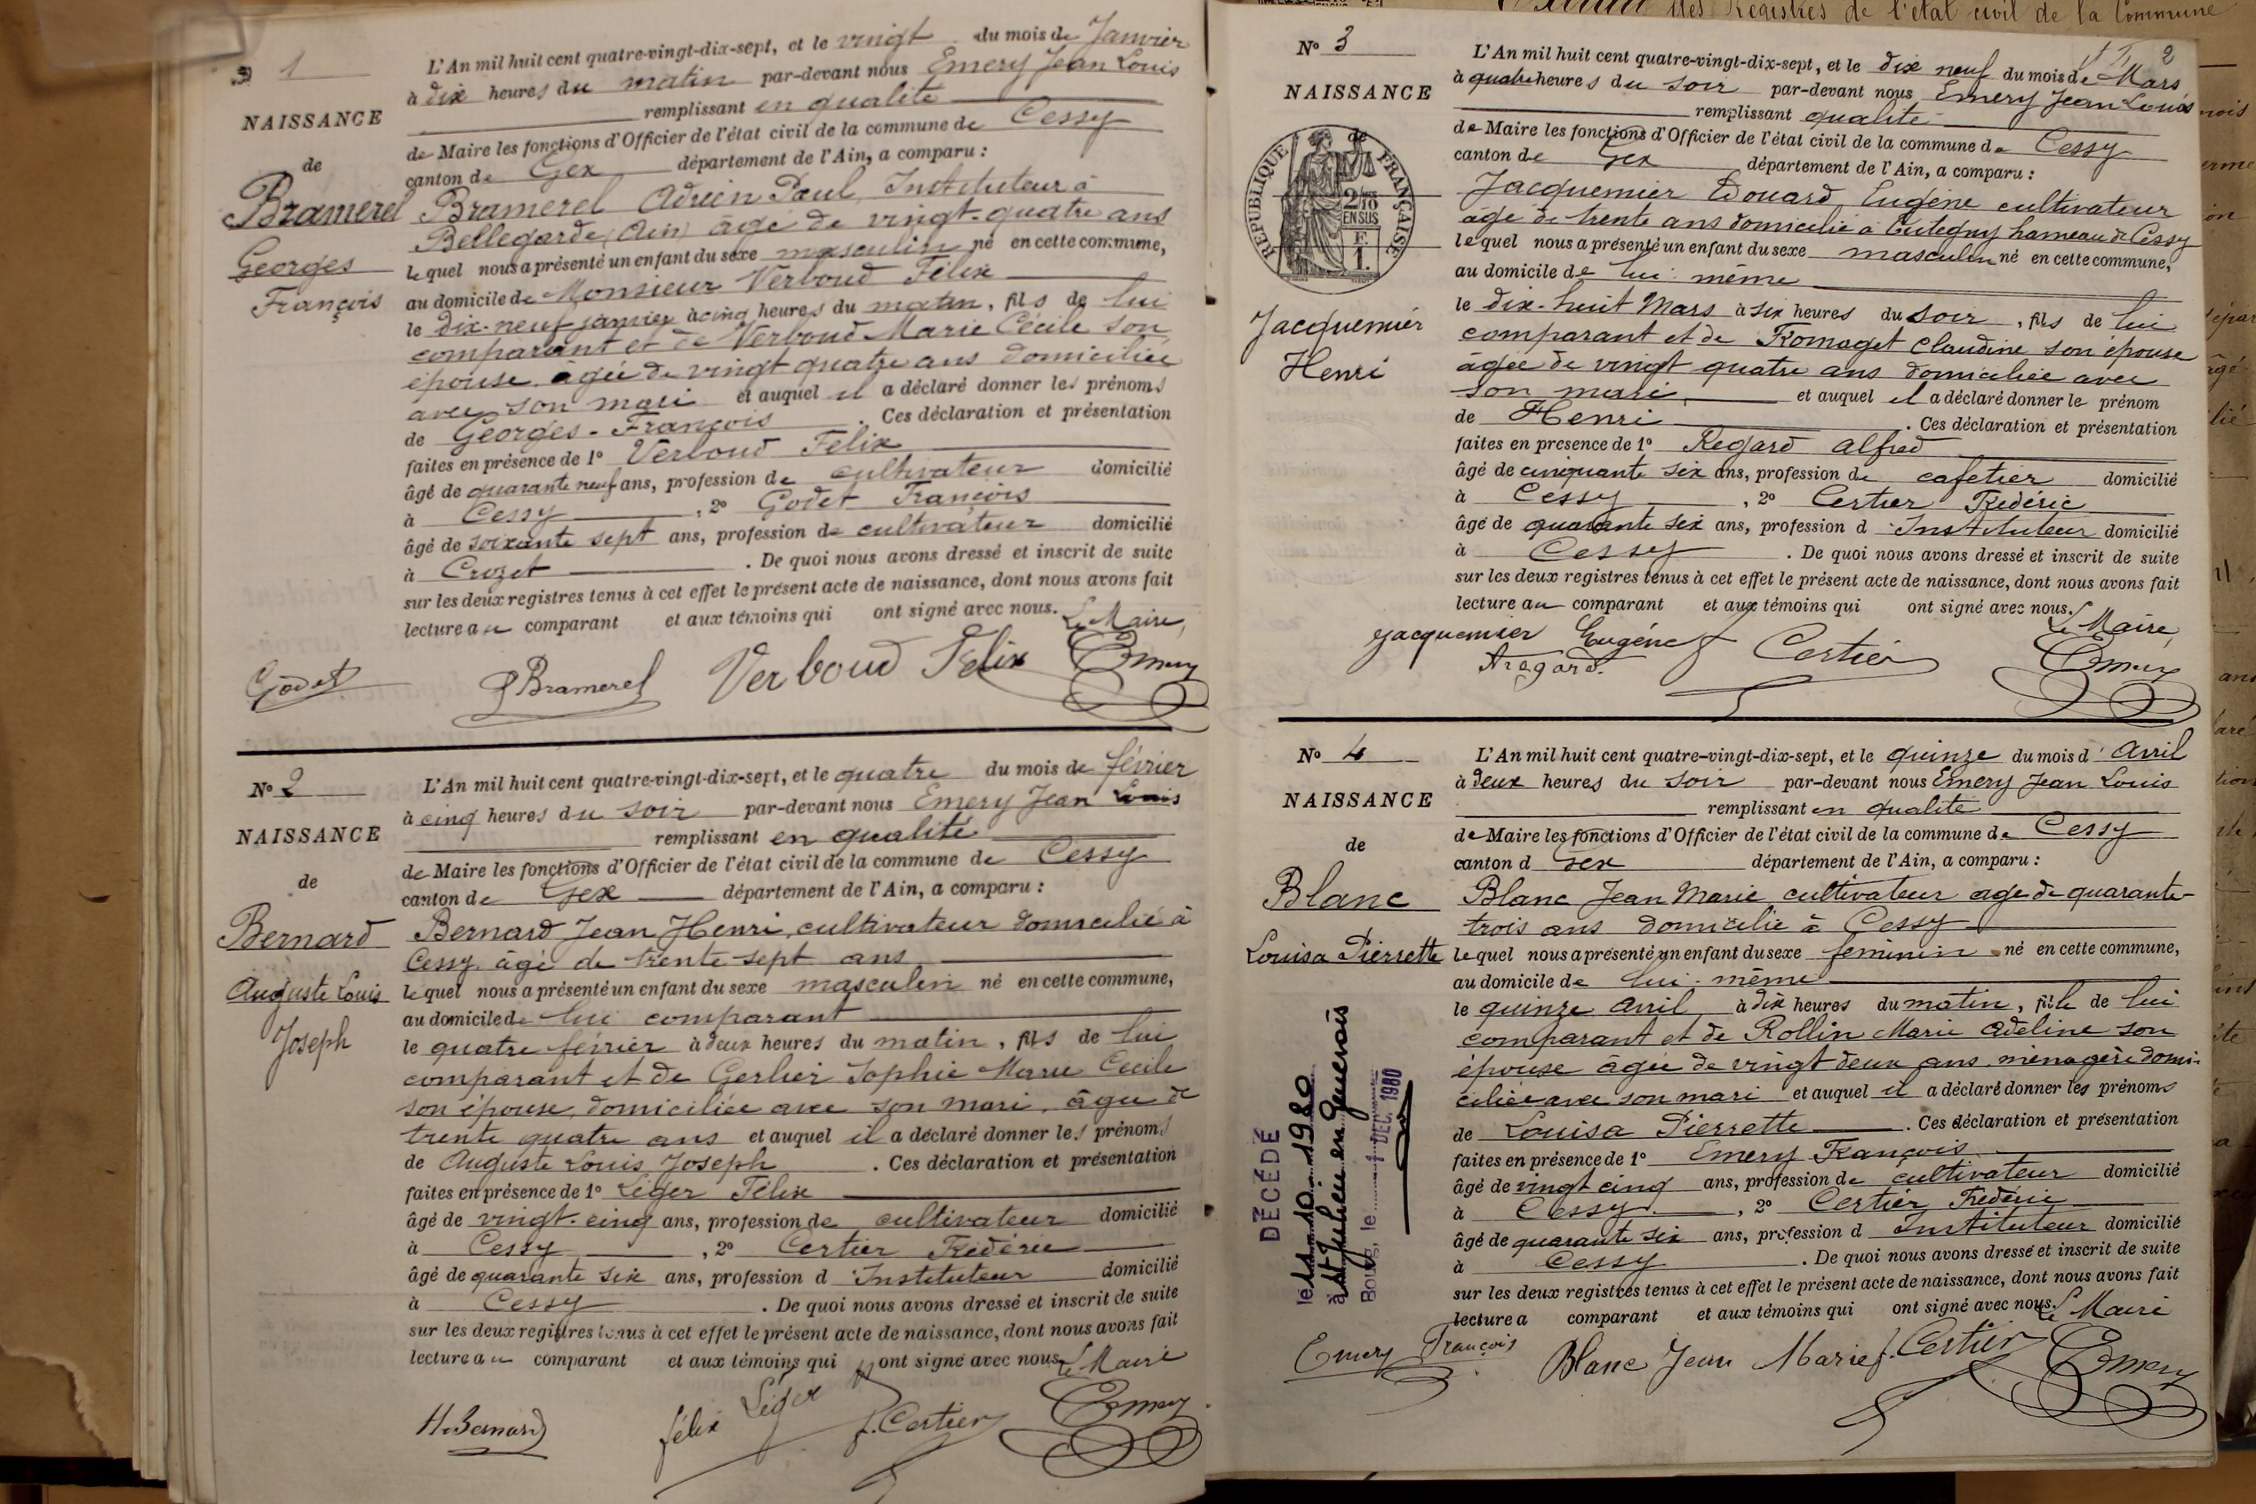 1
NAISSANCE
de
Bramerel
Georges
François
L'An mil huit cent quatre-vingt-dix-sept, et le vingt du mois de Janvier
à dix heures du matin par-devant nous Emery Jean Louis
remplissant en qualité
de Maire les fonctions d'Officier de l'état civil de la commune de Cessy
canton de Gex département de l'Ain, a comparu :
Bramerel Adrien Paul, Instituteur à
Bellegarde (Ain) âgé de vingt-quatre ans
lequel nous a présenté un enfant du sexe masculin né en cette commune,
au domicile de Monsieur Verboud Félix
le dix-neuf janvier à cinq heures du matin, fils de lui
comparant et de Verboud Marie Cécile son
épouse âgée de vingt quatre ans domiciliée
avec son mari et auquel il a déclaré donner les prénoms
de Georges-François Ces déclaration et présentation
faites en présence de 1º Verboud Félix
âgé de quarante neuf ans, profession de cultivateur domicilié
à Cessy, 2º Godet François
âgé de soixante sept ans, profession de cultivateur domicilié
à Crozet. De quoi nous avons dressé et inscrit de suite
sur les deux registres tenus à cet effet le présent acte de naissance, dont nous avons fait
lecture au comparant et aux témoins qui ont signé avec nous.
Le Maire,
Godet P Bramerel Verboud Félix Emery
Nº 2
NAISSANCE
de
Bernard
Auguste Louis
Joseph
L'An mil huit cent quatre-vingt-dix-sept, et le quatre du mois de février
à cinq heures du soir par-devant nous Emery Jean Louis
remplissant en qualité
de Maire les fonctions d'Officier de l'état civil de la commune de Cessy
canton de Gex département de l'Ain, a comparu :
Bernard Jean Henri, cultivateur domicilié à
Cessy âgé de trente-sept ans
lequel nous a présenté un enfant du sexe masculin né en cette commune,
au domicile de lui comparant
le quatre février à deux heures du matin, fils de lui
comparant et de Gerlier Sophie Marie Cécile
son épouse, domiciliée avec son mari, âgée de
trente quatre ans et auquel il a déclaré donner les prénoms
de Auguste Louis Joseph. Ces déclaration et présentation
faites en présence de 1º Léger Félix
âgé de vingt-cinq ans, profession de cultivateur domicilié
à Cessy, 2º Certier Frédéric
âgé de quarante six ans, profession d'Instituteur domicilié
à Cessy. De quoi nous avons dressé et inscrit de suite
sur les deux registres tenus à cet effet le présent acte de naissance, dont nous avons fait
lecture au comparant et aux témoins qui ont signé avec nous.
Le Maire
H. Bernard Félix Léger f. Certier Emery
des Registres de l'état civil de la Commune
2
Nº 3
NAISSANCE
de
RÉPUBLIQUE FRANÇAISE
2/10
EN SUS
F.
1.
Jacquemier
Henri
L'An mil huit cent quatre-vingt-dix-sept, et le dix neuf du mois de Mars
à quatre heures du soir par-devant nous Emery Jean Louis
remplissant qualité
de Maire les fonctions d'Officier de l'état civil de la commune de Cessy
canton de Gex département de l'Ain, a comparu :
Jacquemier Edouard, Eugène cultivateur
âgé de trente ans domicilié à Tutegny hameau de Cessy
lequel nous a présenté un enfant du sexe masculin né en cette commune,
au domicile de lui-même
le dix-huit Mars à six heures du soir, fils de lui
comparant et de Fromaget Claudine son épouse
âgée de vingt quatre ans domiciliée avec
son mari, et auquel il a déclaré donner le prénom
de Henri. Ces déclaration et présentation
faites en présence de 1º Regard Alfred
âgé de cinquante six ans, profession de cafetier domicilié
à Cessy, 2º Certier Frédéric
âgé de quarante six ans, profession d'Instituteur domicilié
à Cessy. De quoi nous avons dressé et inscrit de suite
sur les deux registres tenus à cet effet le présent acte de naissance, dont nous avons fait
lecture au comparant et aux témoins qui ont signé avec nous.
Le Maire,
Jacquemier Eugène f Certier
A regard. Emery
Nº 4
NAISSANCE
de
Blanc
Louisa Pierrette
DÉCÉDÉ
à St Julien en Genevois
Bourg, le DEC. 1980
L'An mil huit cent quatre-vingt-dix-sept, et le quinze du mois d'Avril
à deux heures du soir par-devant nous Emery Jean Louis
remplissant en qualité
de Maire les fonctions d'Officier de l'état civil de la commune de Cessy
canton d Gex département de l'Ain, a comparu :
Blanc Jean Marie cultivateur âgé de quarante-
trois ans domicilié à Cessy
lequel nous a présenté un enfant du sexe féminin né en cette commune,
au domicile de lui-même
le quinze avril à dix heures du matin, fille de lui
comparant et de Rollin Marie Adeline son
épouse âgée de vingt deux ans ménagère domi-
ciliée avec son mari et auquel il a déclaré donner les prénoms
de Louisa Pierrette. Ces déclaration et présentation
faites en présence de 1º Emery François
âgé de vingt cinq ans, profession de cultivateur domicilié
à Cessy, 2º Certier Frédéric
âgé de quarante six ans, profession d Instituteur domicilié
à Cessy. De quoi nous avons dressé et inscrit de suite
sur les deux registres tenus à cet effet le présent acte de naissance, dont nous avons fait
lecture a comparant et aux témoins qui ont signé avec nous.
Le Maire
Emery François Blanc Jean Marie f. Certier Emery